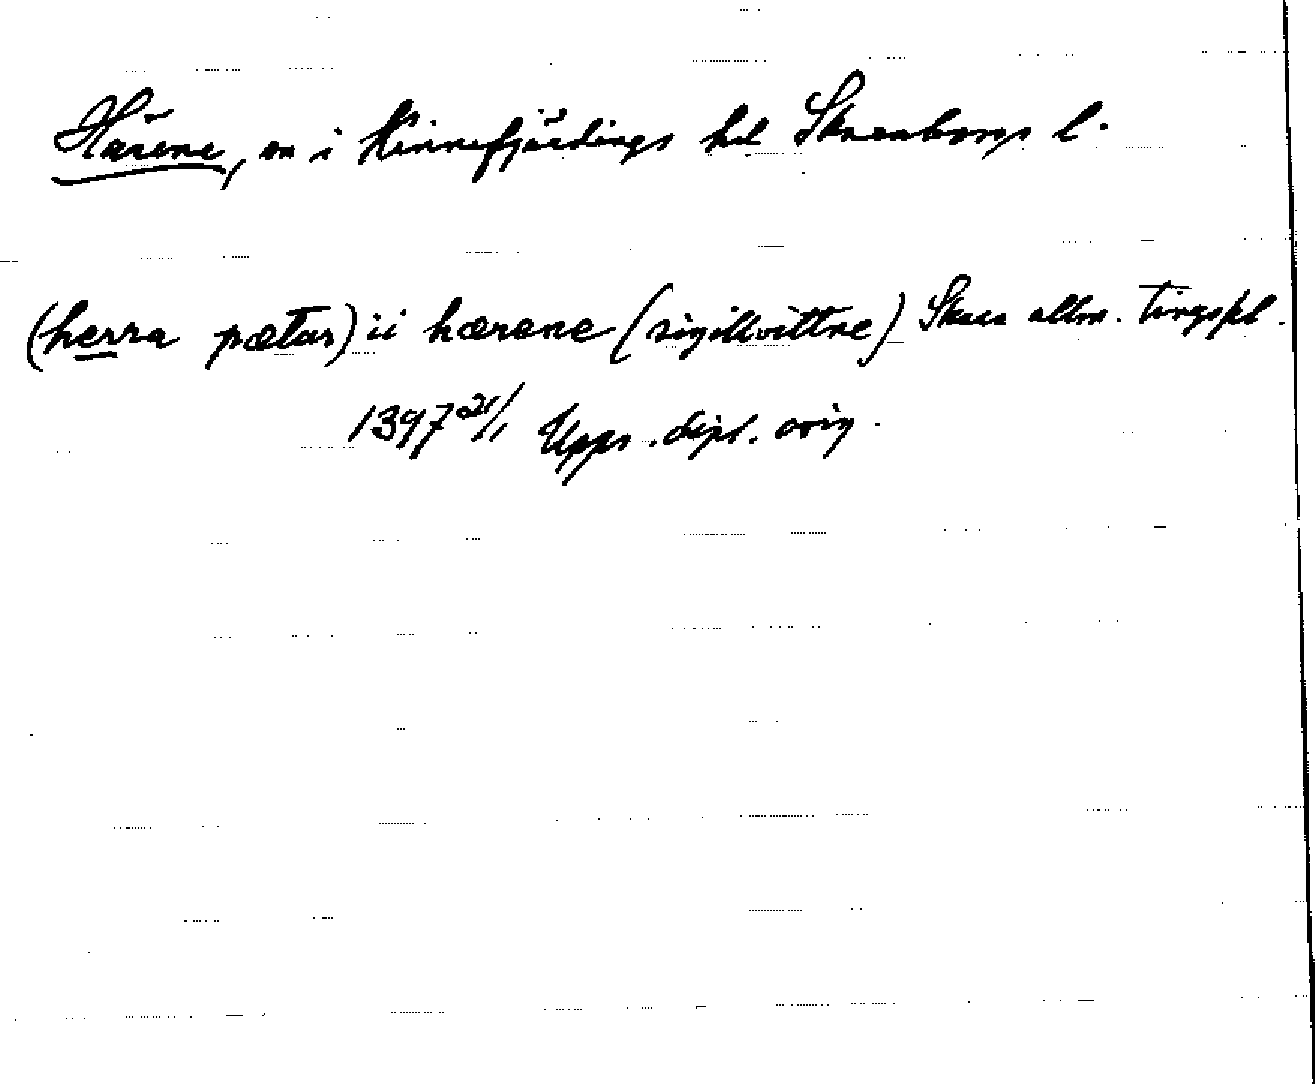 Härene, sn i Kinnefjärdings hd Skaraborgs l.
(herra pætar) ii hærene (sigillvittne) Skara allm. tingspl.
1397 21/1 Upps. dipl. orig.